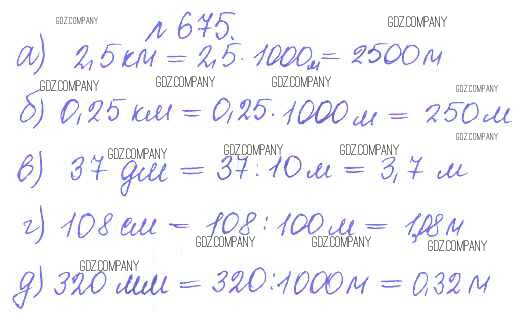 № 675.
GDZ.COMPANY GDZ.COMPANY
а) 2,5 км = 2,5 · 1000 м = 2500 м
GDZ.COMPANY GDZ.COMPANY GDZ.COMPANY GDZ.COMPANY
б) 0,25 км = 0,25 · 1000 м = 250 м
GDZ.COMPANY GDZ.COMPANY GDZ.COMPANY GDZ.COMPANY
в) 37 дм = 37 : 10 м = 3,7 м
г) 108 см = 108 : 100 м = 1,08 м
GDZ.COMPANY GDZ.COMPANY GDZ.COMPANY
GDZ.COMPANY
д) 320 мм = 320 : 1000 м = 0,32 м